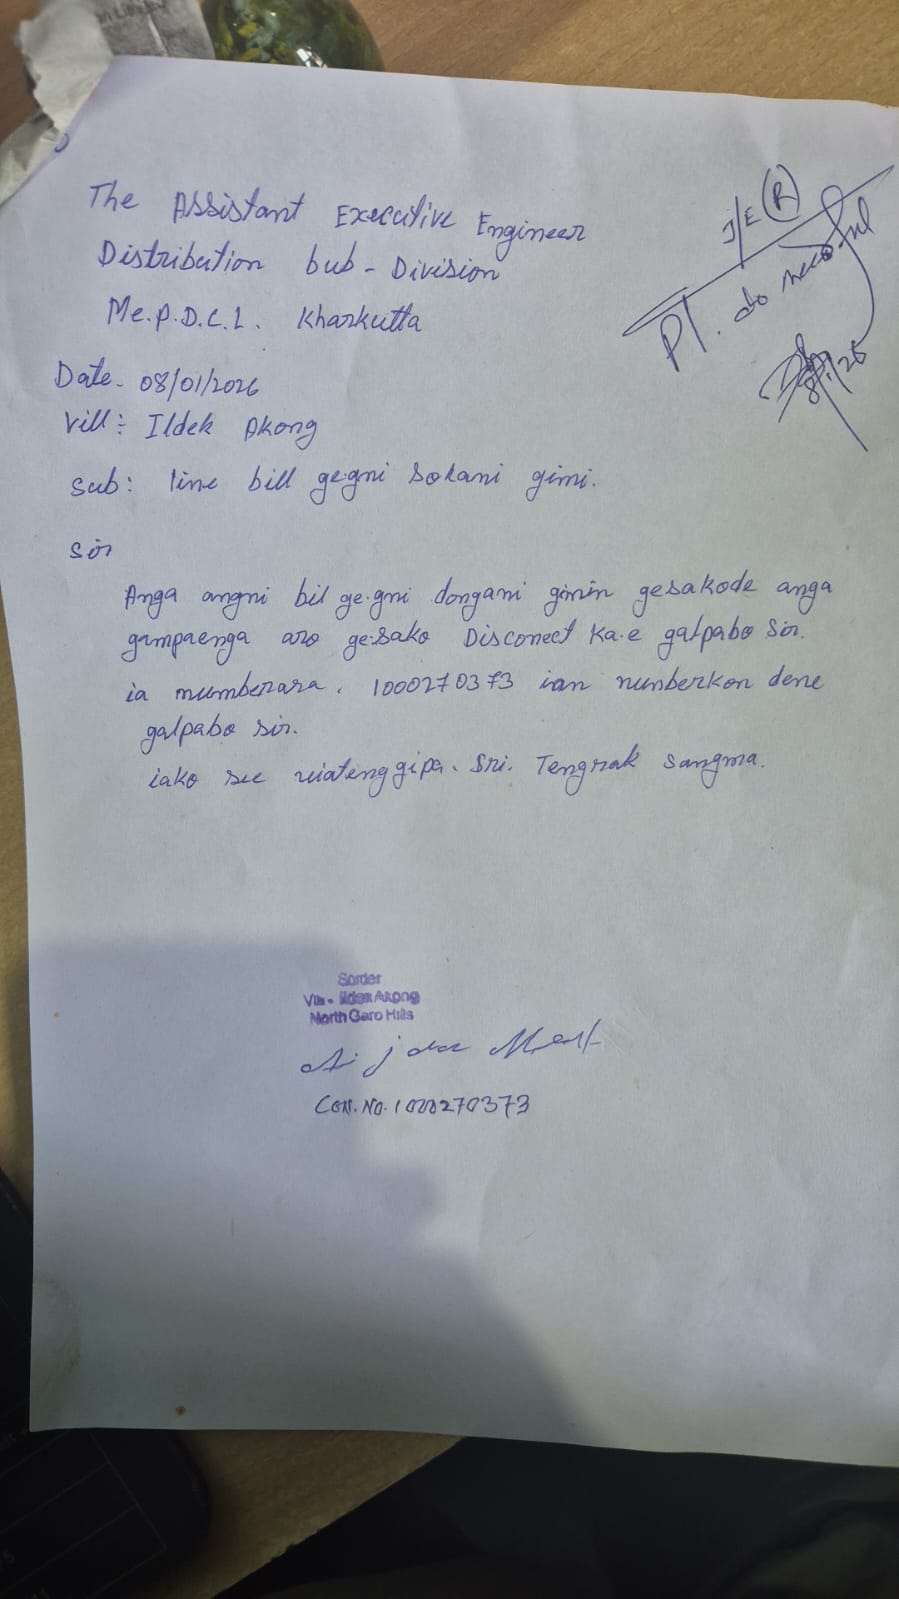 The Assistant Executive Engineer
Distribution bub-Division
Me.P.D.C.L. Kharkutta
J/E (R)
PT. do
8/1/26
Date- 08/01/2026
Vill: Ildek Akong
Sub: line bill ge.gni sokani gimi.
Sir
Anga angni bil ge.gni dongani gimin gesakode anga
gampaenga aro ge.sako Disconect ka.e galpabo Sir.
ia numberara. 1000270373 ian nunberkon dene
galpabo sir.
iako see Sri. Tengrak Sangma.
Sorder
Vill - Ildek Akong
North Garo Hills
Con. No. 1000270373